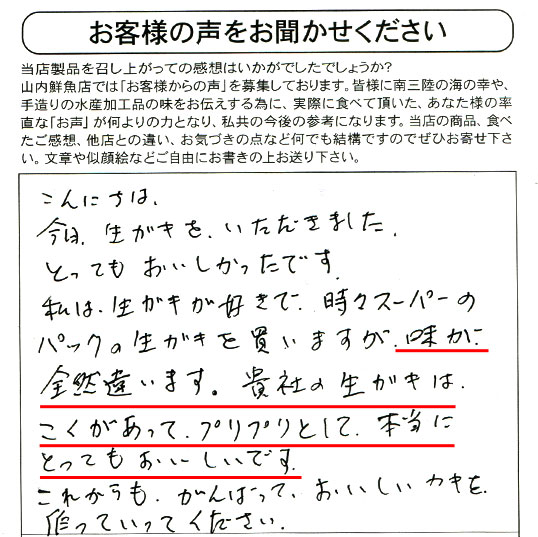 お客様の声をお聞かせください
当店製品を召し上がっての感想はいかがでしたでしょうか?
山内鮮魚店では「お客様からの声」を募集しております。皆様に南三陸の海の幸や、
手造りの水産加工品の味をお伝えする為に、実際に食べて頂いた、あなた様の率
直な「お声」が何よりの力となり、私共の今後の参考になります。当店の商品、食べ
たご感想、他店との違い、お気づきの点など何でも結構ですのでぜひお寄せ下さ
い。文章や似顔絵などご自由にお書きの上お送り下さい。
こんにちは、
今日、生ガキを、いただきました、
とってもおいしかったです、
私は、生ガキが好きで、時々スーパーの
パックの生ガキを買いますが、味が
全然違います。貴社の生ガキは、
こくがあって、プリプリとして、本当に
とってもおいしいです、
これからも、がんばって、おいしいカキを、
作っていってください、